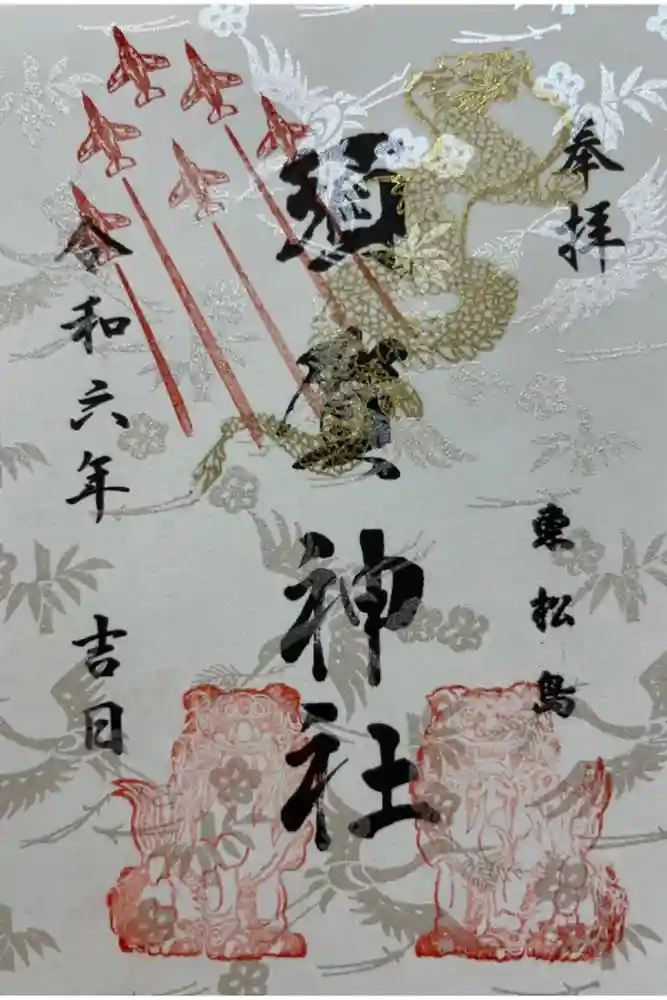 奉拝
東松島
須賀神社
令和六年 吉日